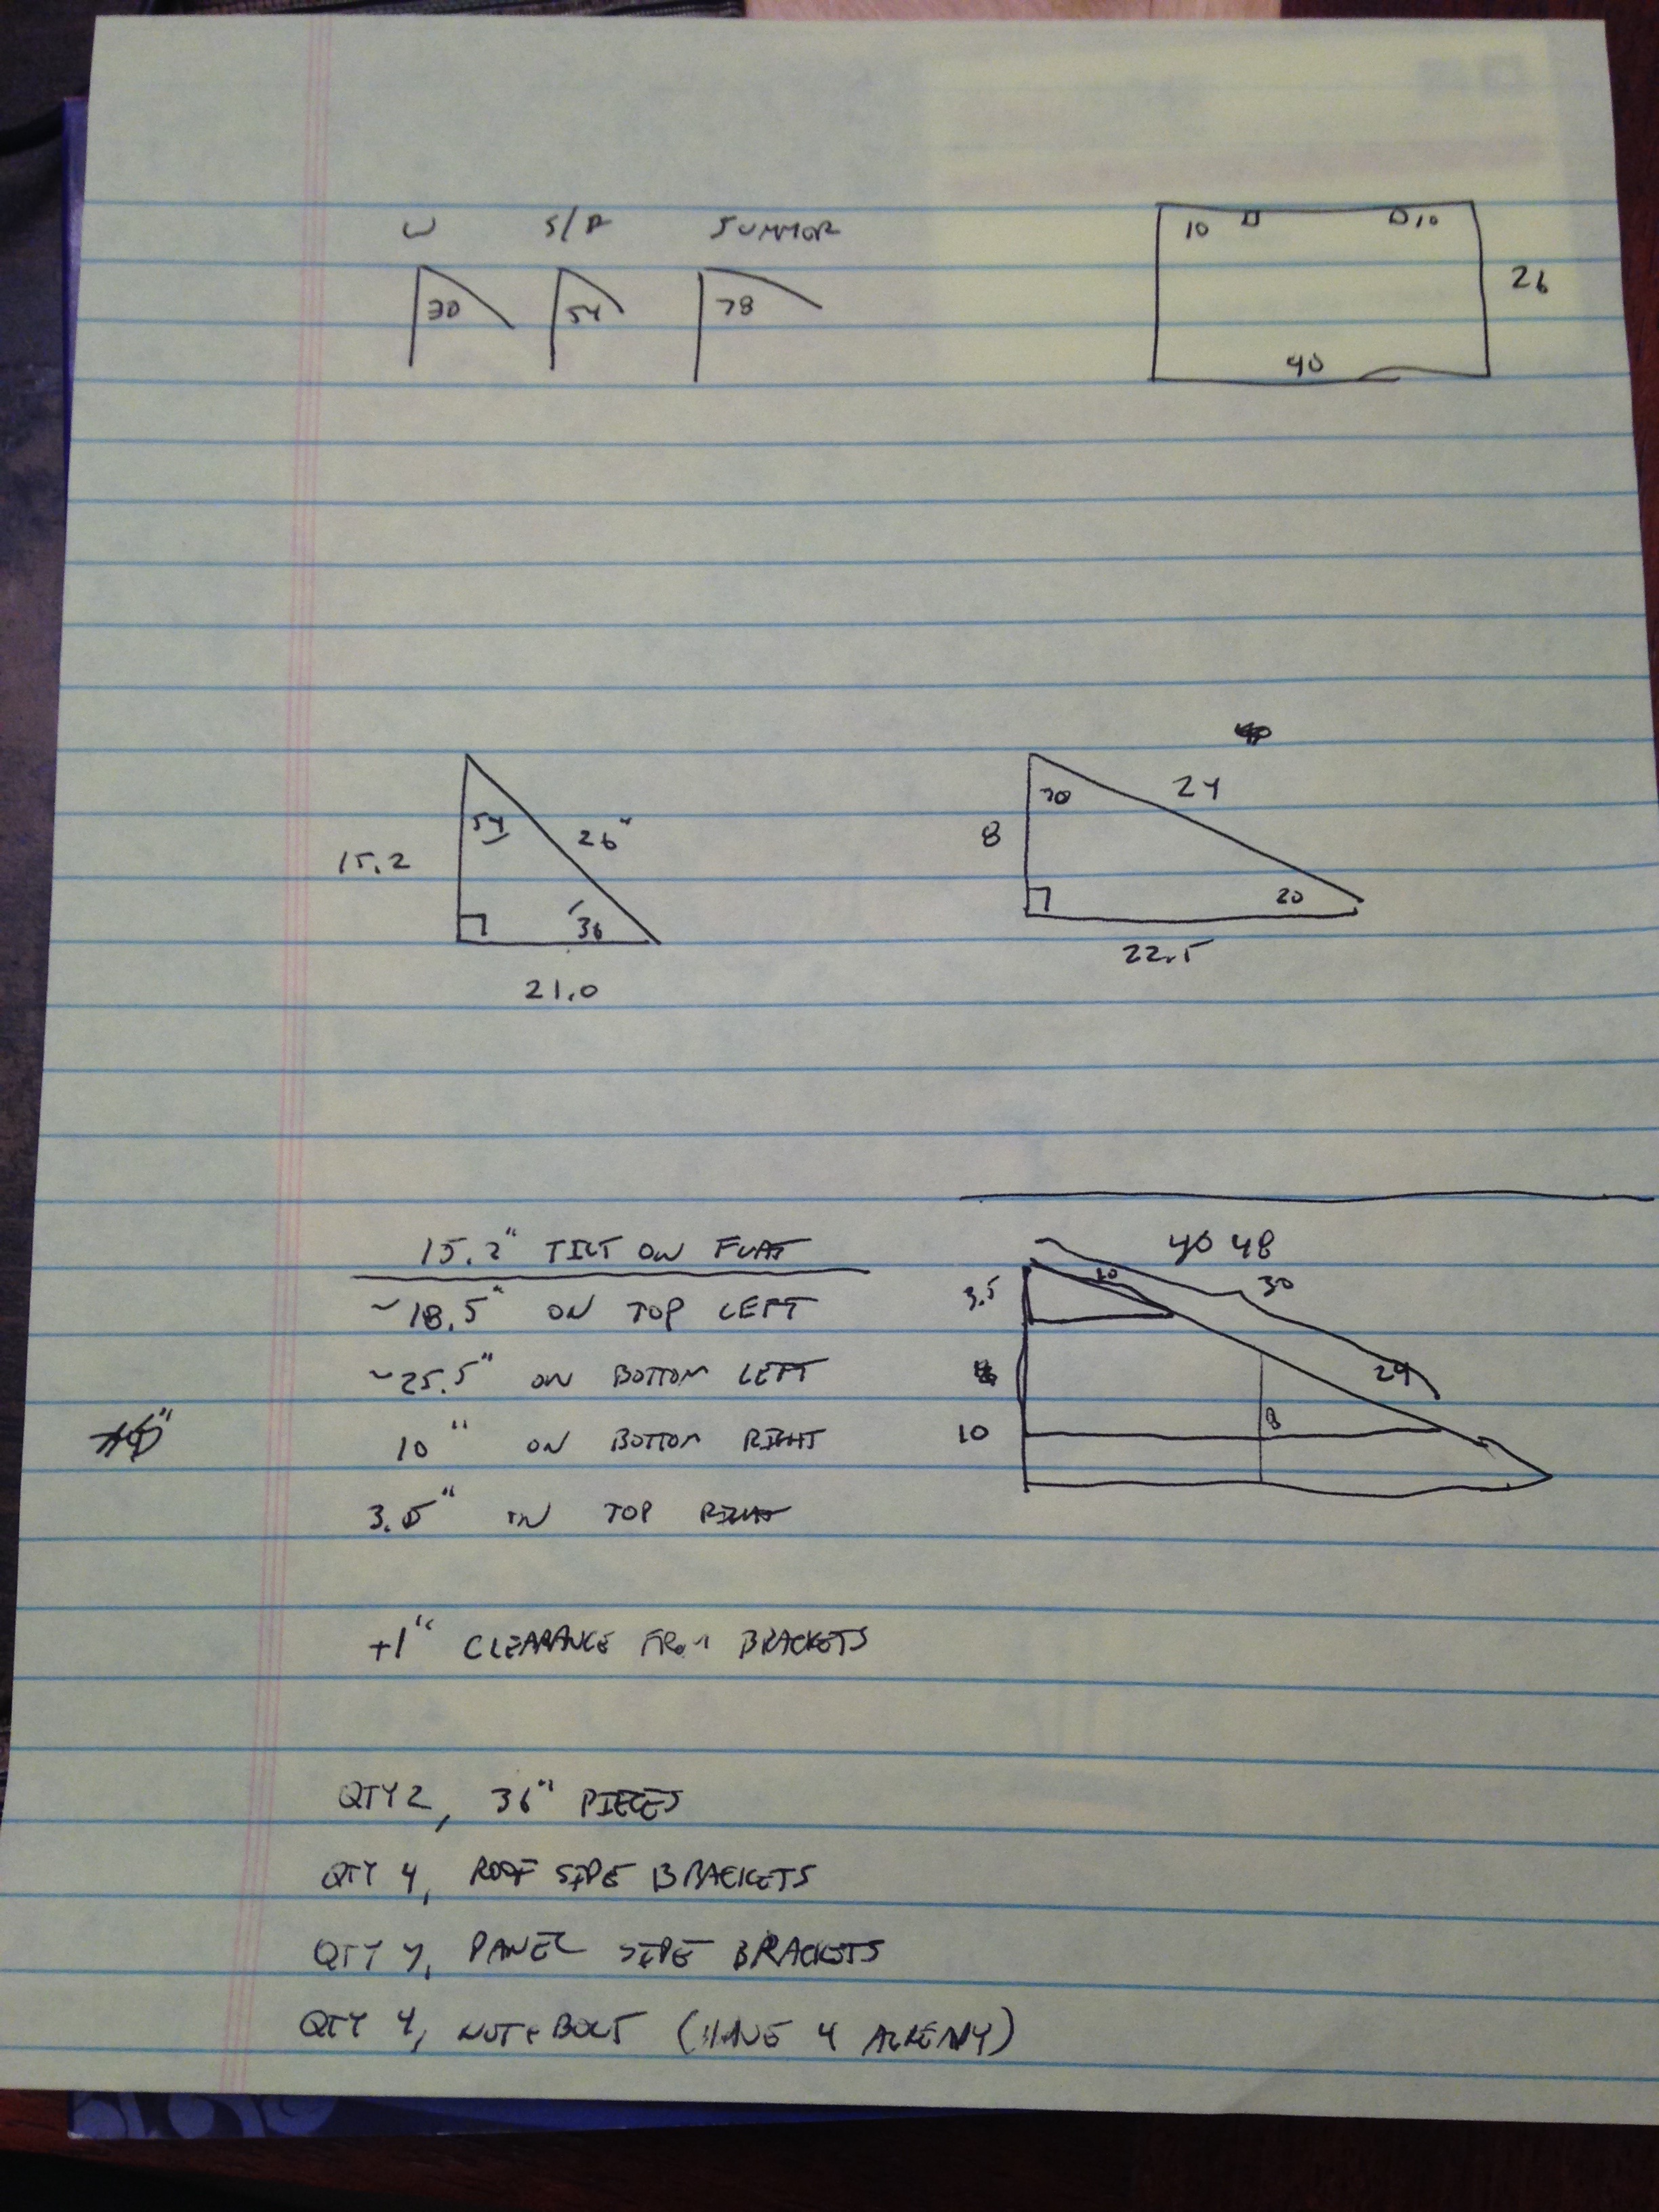 W S/F SUMMER
30 54 78
10 10
26
40
54 26"
15.2
36
21.0
24
70
8
20
22.5
15.2" TILT ON FLAT
~18.5" ON TOP LEFT
~25.5" ON BOTTOM LEFT
10" ON BOTTOM RIGHT
3.5" ON TOP RIGHT
40 48
10 30
3.5
29
10 8
+1" CLEARANCE FROM BRACKETS
QTY 2, 36" PIECES
QTY 4, ROOF SIDE BRACKETS
QTY 4, PANEL SIDE BRACKETS
QTY 4, NUT & BOLT (HAVE 4 ALREADY)